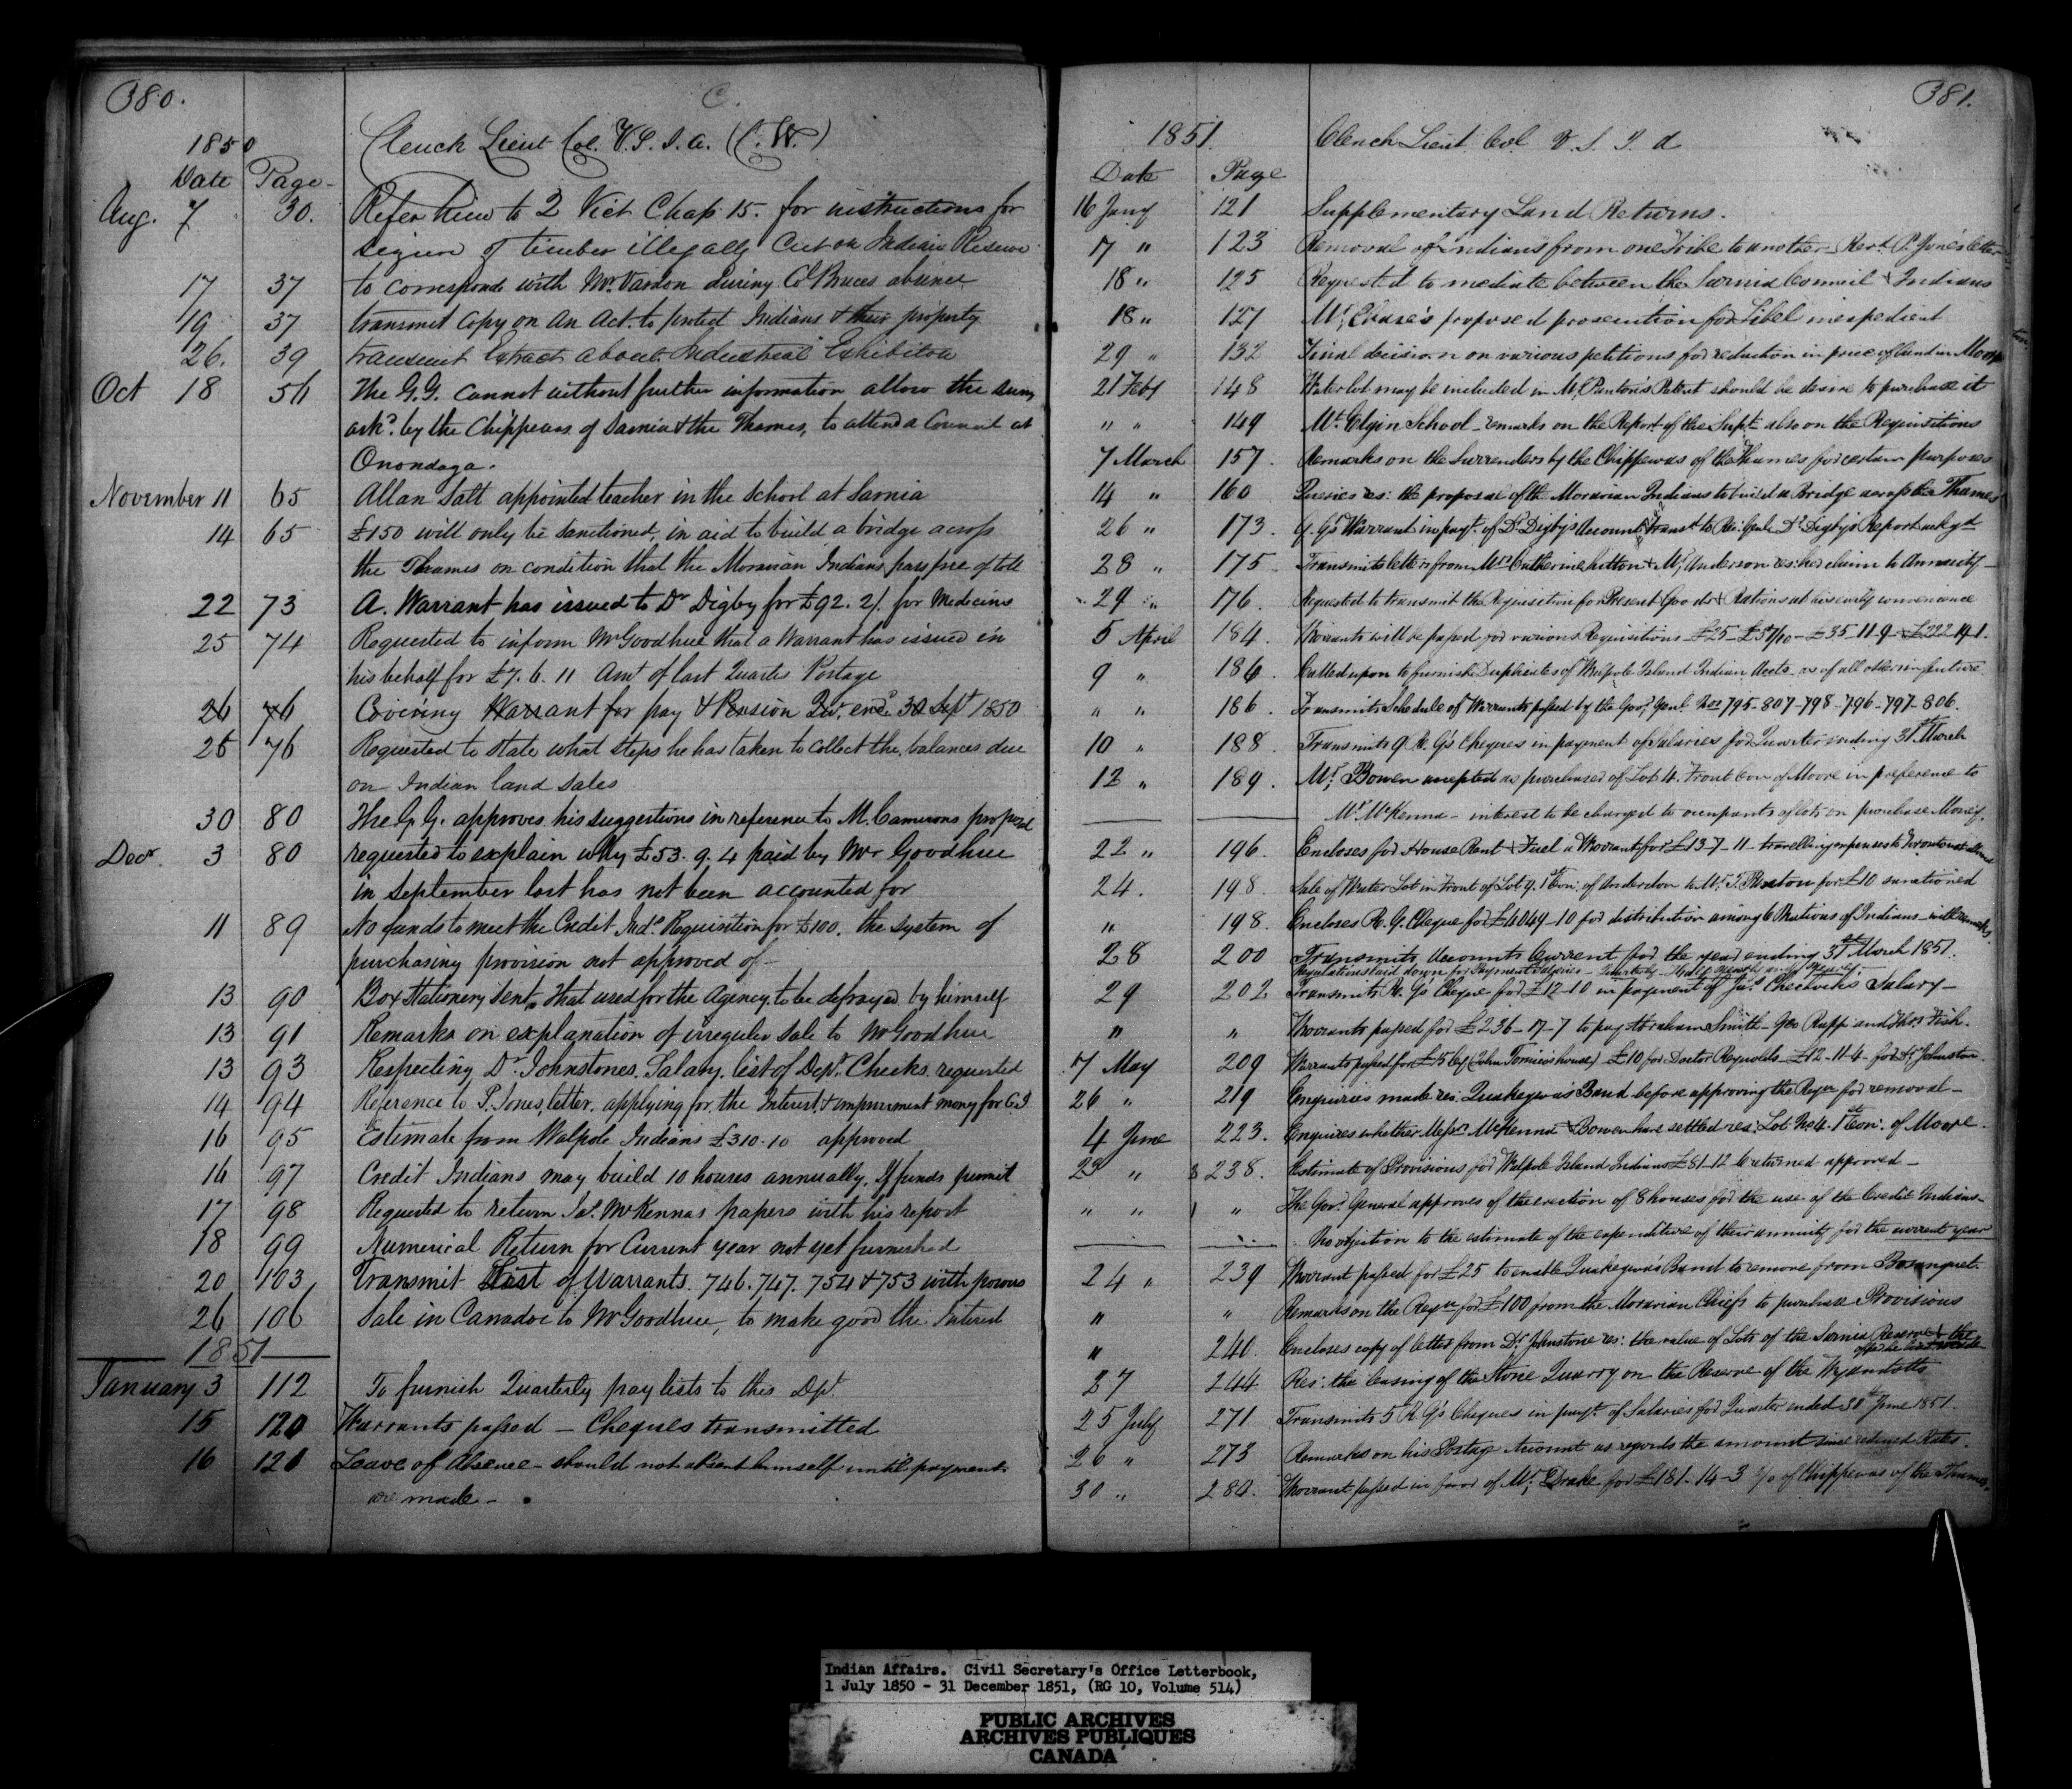 380.
C.
1850
Clench Lieut Col. V.S.I.A. (C.W.)
Date Page
Aug. 7 30. Refer him to 2 Vict Chap 15. for instructions for
of timber illegally Cut on Indian Reserve
17 37 to correspond with Mr. Vardon during Col Bruces absence
19 37 transmit Copy on An Act. to protect Indians & their property
26. 39 transmit Extract about Industrial Exhibition
Oct 18 56 The G.G. cannot without further information allow the sum
askd. by the Chippewas of Sarnia & the Thames, to attend a Council at
Onondaga.
November 11 65 Allan Salt appointed teacher in the School at Sarnia
14 65 £150 will only be sanctioned, in aid to build a bridge across
the Thames on condition that the Moravian Indians pass free of toll
22 73 A. Warrant has issued to Dr Digby for £92. 2/. for Medicine
25 74 Requested to inform Mr Goodhue that a Warrant has issued in
his behalf for £7. 6. 11 Amt of last Quarter Postage
26 76 Covering Warrant for pay & Pension Qur. end. 30 Sept 1850
26 76 Requested to state what steps he has taken to collect the balances due
on Indian land sales
30 80 The G.G. approves his suggestions in reference to M. Camerons proposal
Decr. 3 80 requested to explain why £53. 9. 4 paid by Mr Goodhue
in September last has not been accounted for
11 89 No funds to meet the Credit Inds. Requisition for £100. the system of
purchasing provision not approved of -
13 90 Box Stationery Sent, that used for the Agency, to be defrayed by himself
13 91 Remarks on explanation of irregular sale to Mr Goodhue
13 93 Respecting Dr Johnstones. Salary. list of Dept. Checks requested
14 94 Reference to P. Jones, letter. applying for the Interest, & money for C.I
16 95 Estimate from Walpole Indians £310.10 approved
16 97 Credit Indians may build 10 houses annually, If funds permit
17 98 Requested to return Jas. McKennas papers with his report
18 99 Numerical Return for Current year not yet furnished
20 103 Transmit List of Warrants. 746. 747. 754 & 753 with
26 106 Sale in Caradoc to Mr Goodhue, to make good the Interest
1851
January 3 112 To furnish Quarterly pay lists to this Dpt.
15 120 Warrants passed - Cheques transmitted
16 121 Leave of Absence - should not absent himself until payments
are made -
381.
1851. Clench Lieut. Col V. S. I. A
Date Page
16 Jany 121 Supplementary Land Returns.
17 " 123 Removal of Indians from one Tribe to another - Revd. P. Jones' letter
18 " 125 Requested to mediate between the Sarnia Council & Indians
18 " 127 Mr. proposed prosecution for Libel inexpedient
29 " 132 Final decision on various petitions for reduction in price of land in Moore
21 Feby 148 Water lot may be included in Mr. Patent should he desire to purchase it
" " 149 Mt. Elgin School - remarks on the Report of the Supt. also on the Requisitions
7 March 157. Remarks on the Surrenders by the Chippewas of the Thames for certain purposes
14 " 160 Queries res: the proposal of the Moravian Indians to build a Bridge across the Thames
26 " 173. G. G's Warrant in payt. of Dr. Digby's Account Dr. Digby's Report
28 " 175 Transmits letters from Mrs Catherine Sutton & Mr. Anderson res: her claim to Annuity -
29 " 176. Requested to transmit the Requisition for Present Goods & Rations at his early convenience
5 April 184. Warrants will be passed for various Requisitions - £25 - £57/10 - £35-11-9 - £222-19-1.
9 " 186 Called upon to furnish Duplicates of Walpole Island Indian Accts. as of all others in future
" " 186. Transmits Schedule of Warrants passed by the Govr. Genl. Nos 795-807-798-796-797-806.
10 " 188 Transmits 9 R. G's Cheques in payment of Salaries for Quarter ending 31st March
12 " 189. Mr. Bowen accepted as purchaser of Lot 4. Front Con of Moore in preference to
Mr. McKenna - interest to be charged to occupants of lots on purchase Money.
22 " 196. Encloses for House Rent & Fuel a Warrant for £13-7-11 - travelling expenses to Toronto not allowed
24. 198. Sale of Water Lot in Front of Lot 9. 1st Con. of Anderdon to Mr. for £10 sanctioned
" 198. Encloses R. G. Cheque for £4049-10 for distribution among 6 Nations of Indians - with remarks.
28 200 Transmits Accounts Current for the year ending 31st March 1851.
Regulations laid down for Payment Salaries - Quarterly - Half Yearly and Yearly.
29 202 Transmits R. G's Cheque for £12-10 in payment of Jas. Salary -
" " Warrants passed for £236-17-7 to pay Abraham Smith - Geo Rapp and Thos. Fish.
7 May 209 Warrants passed for £5 (John house) - £10 for Doctor Reynolds - £12-11-4 - for Dr. Johnston.
26 " 219 Enquiries made res: Quakegwa's Band before approving the Reqn for removal -
4 June 223. Enquires whether Messrs McKenna & Bowen have settled res: Lot No 4. 1st Con. of Moore.
23 " 238. Estimate of Provisions for Walpole Island Indians £81-12-6 returned approved -
" " " The Govr. General approves of the erection of 8 houses for the use of the Credit Indians -
No objection to the estimate of the expenditure of their annuity for the current year
24 " 239 Warrant passed for £25 to enable Quakegwa's Band to remove from Bosanquet.
" " Remarks on the Reqn for £100 from the Moravian Chiefs to purchase Provisions
" 240. Encloses copy of letter from Dr. Johnstone res: the value of Lots of the Sarnia Reserve & the
27 244 Res: the leasing of the Stone Quarry on the Reserve of the Wyandotts
25 July 271 Transmits 5 R. G's Cheques in payt. of Salaries for Quarter ended 30th June 1851.
26 " 273 Remarks on his Postage Account as regards the amount since reduced Rates.
30 " 280. Warrant passed in favor of Mr. Drake for £181-14-3 a/c of Chippewas of the Thames.
Indian Affairs. Civil Secretary's Office Letterbook,
1 July 1850 - 31 December 1851, (RG 10, Volume 514)
PUBLIC ARCHIVES
ARCHIVES PUBLIQUES
CANADA